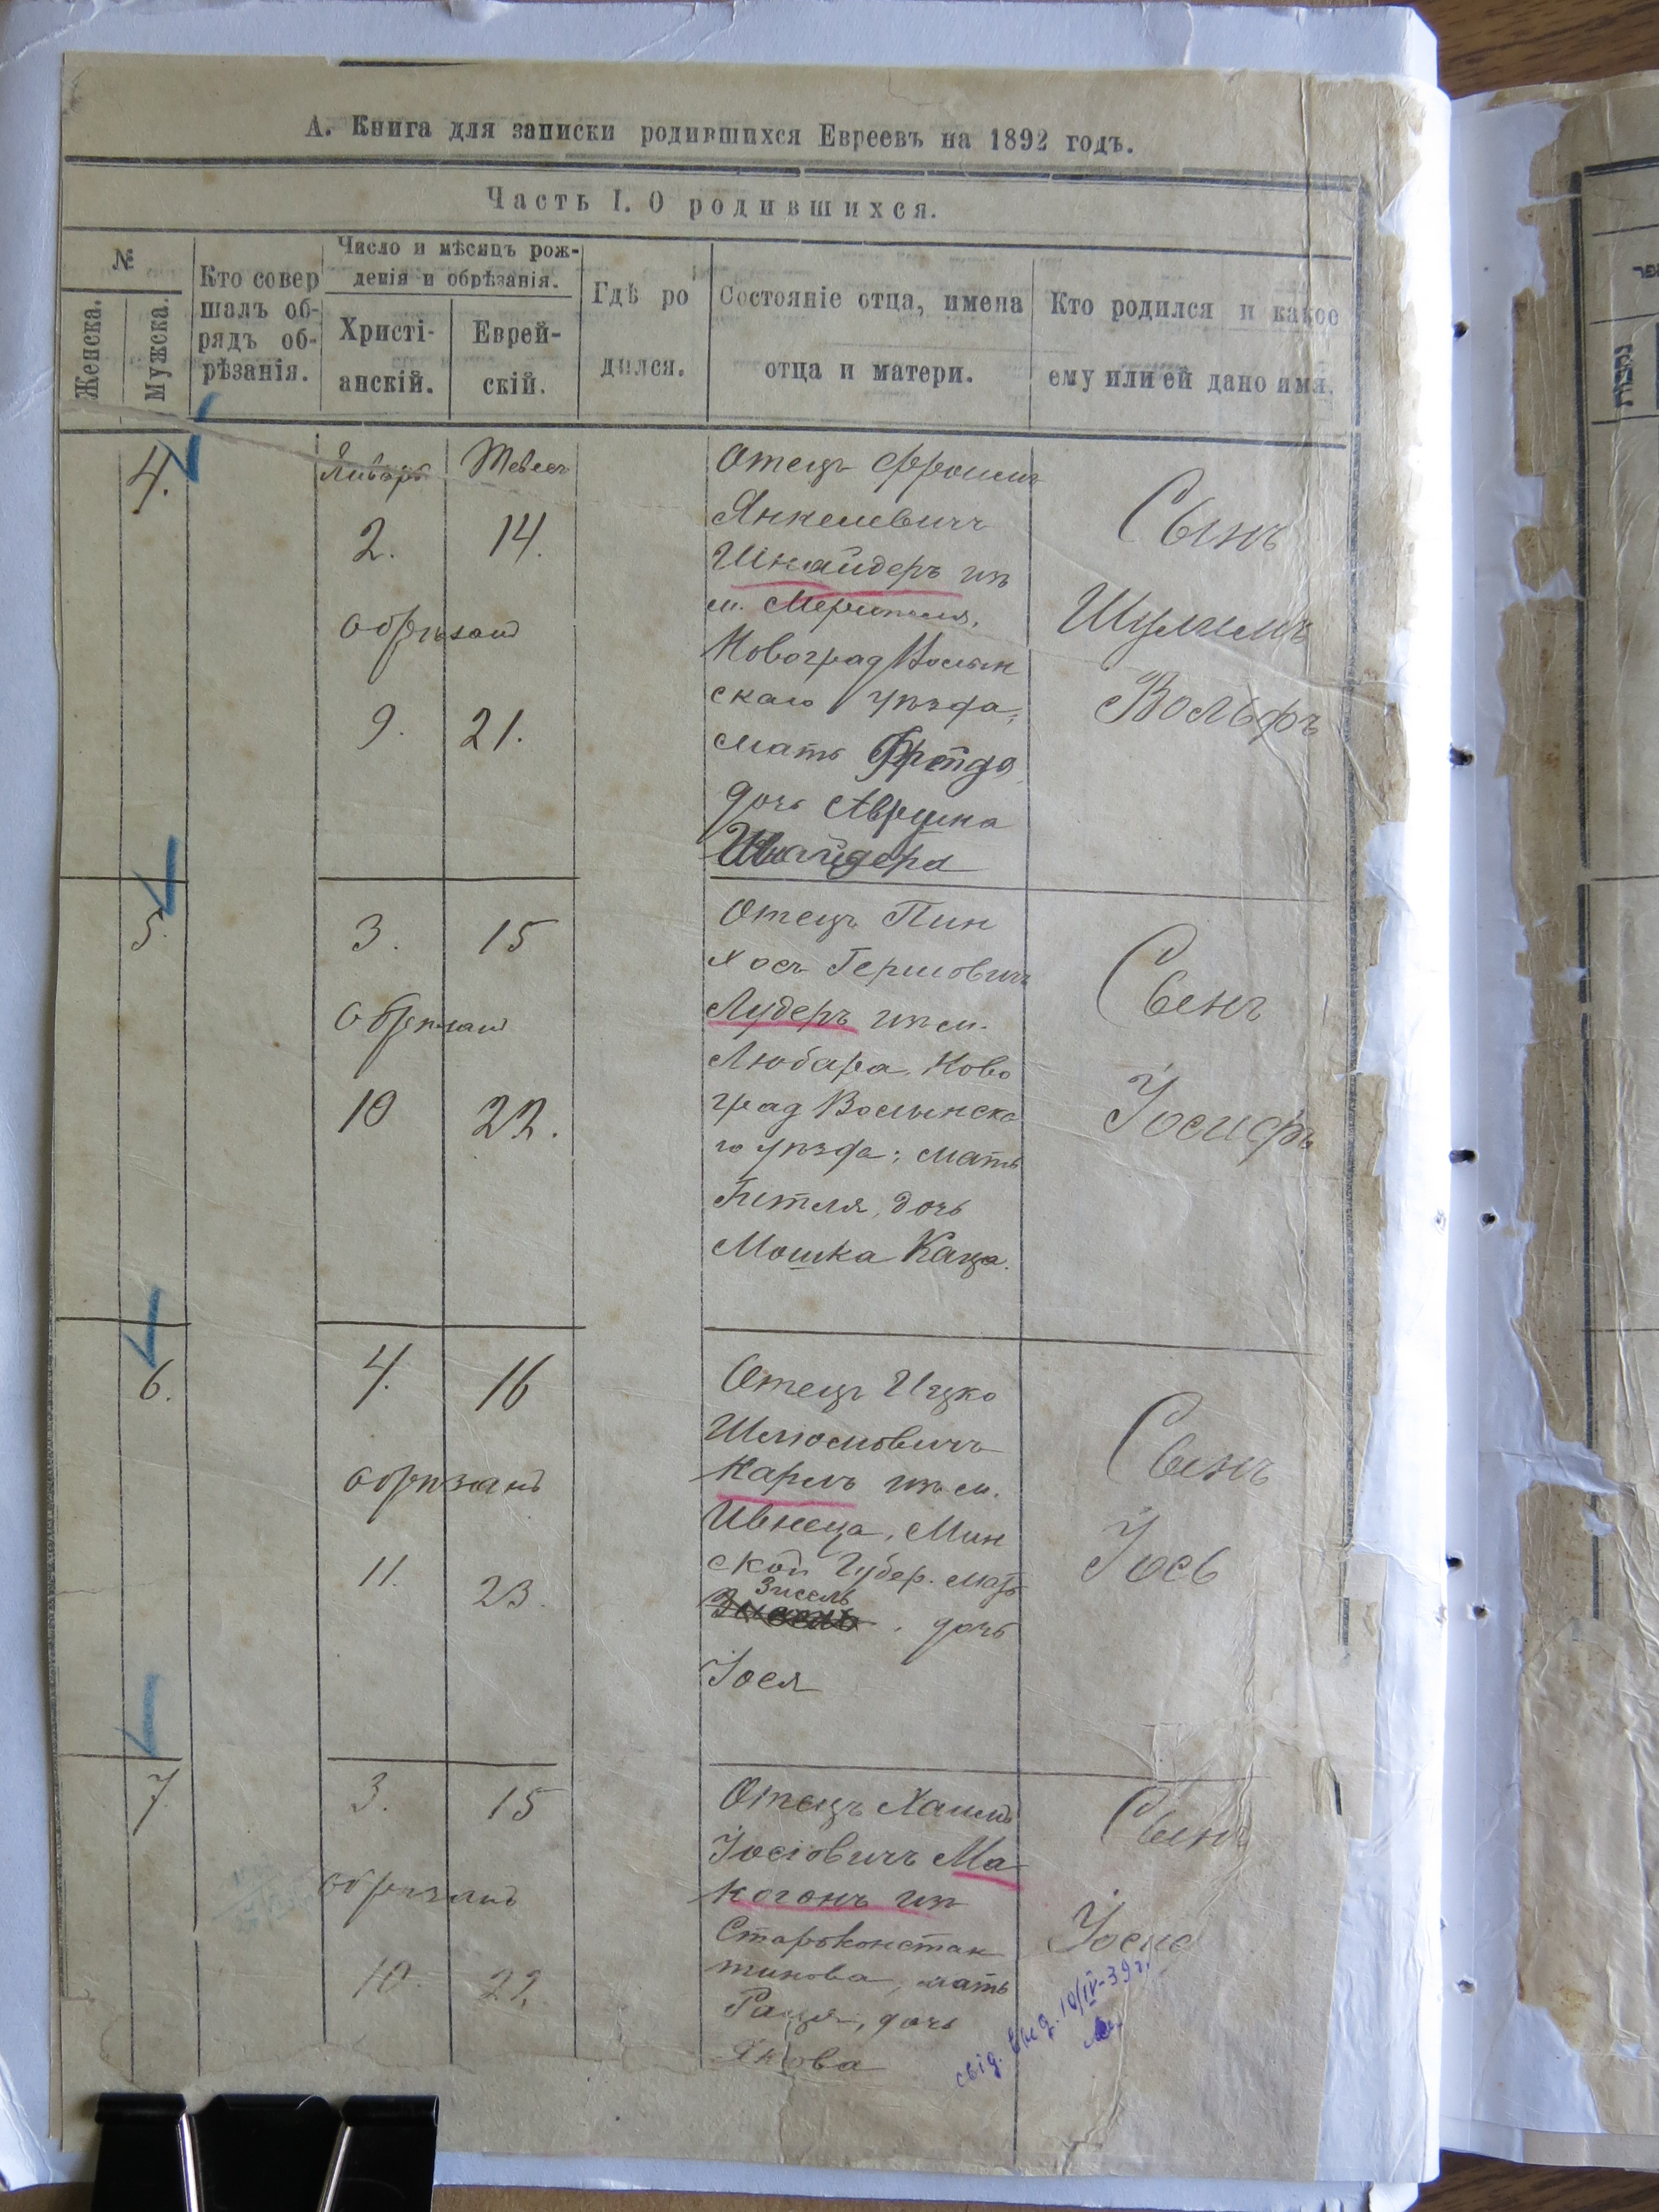 А. Книга для записки родившихся Евреевъ на 1892 годъ.
Часть I. О родившихся.
№
Женска.
Мужска.
Кто совер
шалъ об-
рядъ об-
рѣзанія.
Число и мѣсяцъ рож-
денія и обрѣзанія.
Христі-
анскій.
Еврей-
скій.
Гдѣ ро
дился.
Состояніе отца, имена
отца и матери.
Кто родился и какое
ему или ей дано имя.
4.
Январь
Тевесъ
2.
14.
обрѣзанъ
9.
21.
Отецъ Фроимъ
Янкелевичъ
Шнайдеръ изъ
м.
Новоград Волын
скаго уѣзда,
мать Фрейда
дочь Аврума
Шнайдера
Сынъ
Шулимъ
Вольфъ
5.
3.
15
обрѣзанъ
10
22.
Отецъ Пин
хосъ Гершовичъ
Лудеръ изъ м.
Любара, Ново
град Волынска
го уѣзда; мать
Гитля, дочь
Мошка Каца.
Сынъ
Іосифъ
6.
4.
16
обрѣзанъ
11.
23.
Отецъ Ицко
Шлюмовичъ
Карпъ изъ м.
Ивенца, Мин
ской Губер. мать
Зисель
дочь
Іося
Сынъ
Іось
7
3.
15
обрѣзанъ
10.
22.
Отецъ Хаимъ
Іосіовичъ Ма
когонъ изъ
Староконстан
тинова, мать
Рация, дочь
Якова
Сынъ
Іосиф
свід. вид. 10/IV-39 г.